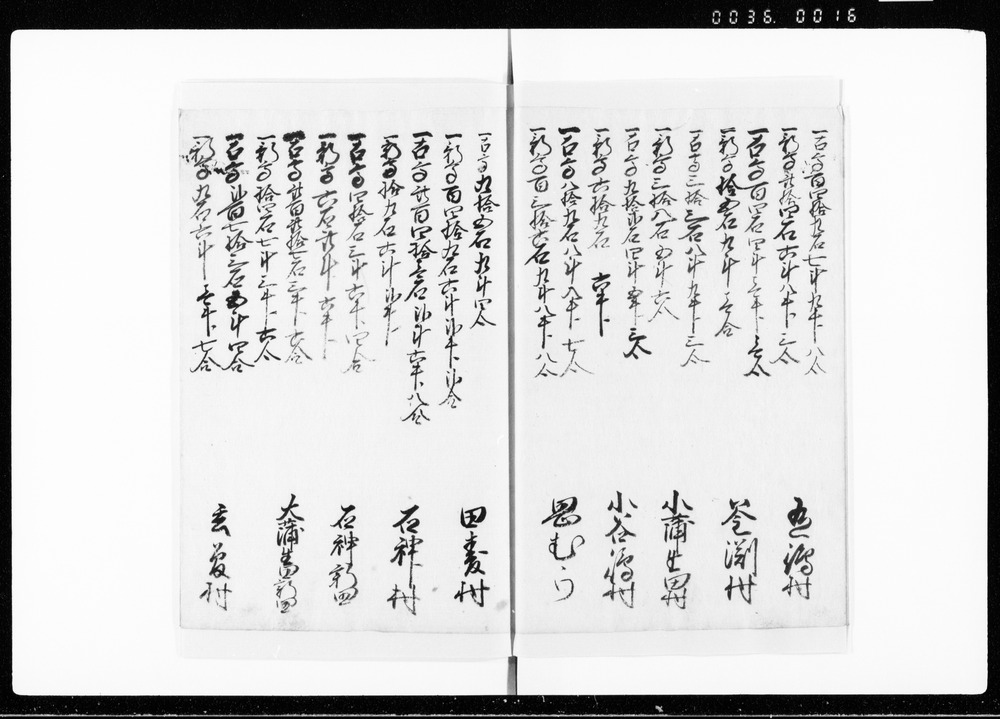 0036. 0016
一古高百四拾九石七斗九升八合
一新高弐拾四石六斗八升三合
一古高百四石四斗三升壱合
一新高拾五石九斗壱合
一古高三拾三石八斗九升三合
一新高三拾八石五斗六合
一古高九拾弐石四斗五升三合
一新高六拾九石 六升
一古高八拾九石八斗八升七合
一新高百三拾六石九斗八升八合
釜渕村
小蒲生田村
小谷鴻村
一古高九拾五石九斗四合
一新高百四拾九石六斗弐升弐合
一古高弐百四拾三石弐斗六升八合
一新高拾九石六斗弐升
一古高四拾石三斗六升四合
一新高六石弐斗六升
一古高弐百弐拾石三升六合
一新高拾四石七斗三升六合
一古高弐百七拾三石五斗四合
一新高九石六斗壱升七合
田麦村
石神村
石神新田
大蒲生田新田